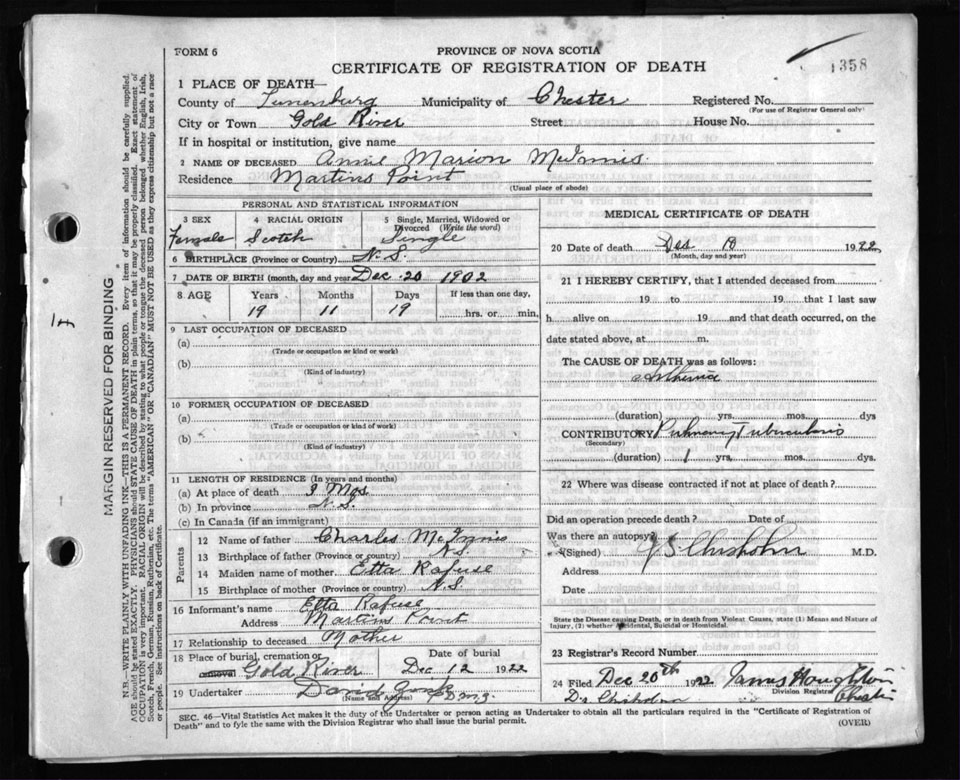 FORM 6
PROVINCE OF NOVA SCOTIA
CERTIFICATE OF REGISTRATION OF DEATH
1358
1 PLACE OF DEATH—
County of Lunenburg Municipality of Chester Registered No.
(For use of Registrar General only)
City or Town Gold River Street House No.
If in hospital or institution, give name
2 NAME OF DECEASED Annie Marion McInnis
Residence Martins Point
(Usual place of abode)
PERSONAL AND STATISTICAL INFORMATION
3 SEX 4 RACIAL ORIGIN 5 Single, Married, Widowed or Divorced (Write the word)
Female Scotch Single
6 BIRTHPLACE (Province or Country) N.S.
7 DATE OF BIRTH (month, day and year) Dec. 20 1902
8 AGE Years Months Days If less than one day,
19 11 19 hrs. or min.
9 LAST OCCUPATION OF DECEASED
(a)
(Trade or occupation or kind or work)
(b)
(Kind of industry)
10 FORMER OCCUPATION OF DECEASED
(a)
(Trade or occupation or kind of work)
(b)
(Kind of industry)
11 LENGTH OF RESIDENCE (In years and months)
(a) At place of death 3 Mos
(b) In province N.S.
(c) In Canada (if an immigrant)
Parents
12 Name of father Charles McInnis
13 Birthplace of father (Province or country) N.S.
14 Maiden name of mother Etta Rafuse
15 Birthplace of mother (Province or country) N.S.
16 Informant's name Etta Rafuse
Address Martins Point
17 Relationship to deceased Mother
18 Place of burial, cremation or removal Date of burial
Gold River Dec 12 1922
19 Undertaker David
(Name and Address)
MEDICAL CERTIFICATE OF DEATH
20 Date of death 1922
(Month, day and year)
21 I HEREBY CERTIFY, that I attended deceased from
19 to 19 that I last saw
h alive on 19 and that death occurred, on
date stated above, at m.
The CAUSE OF DEATH was as follows:
Asthenia
(duration) yrs. mos. dys
CONTRIBUTORY Pulmonary Tuberculosis
(Secondary)
(duration) 1 yrs. mos. dys.
22 Where was disease contracted if not at place of death?
Did an operation precede death? Date of
Was there an autopsy
(Signed) J S Chisholm M.D.
Address
Date
State the Disease Causing Death, or in death from Violent Causes, state (1) Means and Nature of
Injury, (2) whether Accidental, Suicidal or Homicidal.
23 Registrar's Record Number
24 Filed Dec 20th 1922 James Houghton
Division Registrar
Dr Chisholm Chester
SEC. 46—Vital Statistics Act makes it the duty of the Undertaker or person acting as Undertaker to obtain all the particulars required in the "Certificate of Registration of
Death" and to fyle the same with the Division Registrar who shall issue the burial permit. (OVER)
MARGIN RESERVED FOR BINDING
N.B.—WRITE PLAINLY WITH UNFADING INK—THIS IS A PERMANENT RECORD. Every item of information should be carefully supplied.
AGE should be stated EXACTLY. PHYSICIANS should STATE CAUSE OF DEATH in plain terms, so that it may be properly classified. Exact statement of
OCCUPATION is very important. RACIAL ORIGIN will be described by stating to what people or tongue the deceased person belonged whether English, Irish,
Scotch, French, German, Russian, Ruthenian, etc. The terms "AMERICAN" OR "CANADIAN" MUST NOT BE USED as they express citizenship but not a race
or people. See instructions on back of Certificate.